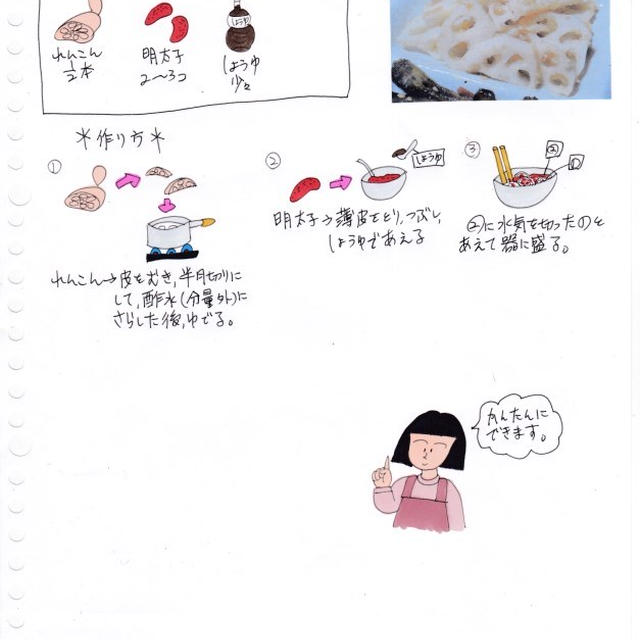 しょうゆ
れんこん
1/2本
明太子
2〜3コ
しょうゆ
少々
*作り方*
①
れんこん→皮をむき、半月切りに
して、酢水(分量外)に
さらした後、ゆでる。
②
しょうゆ
明太子→薄皮をとり、つぶし、
しょうゆであえる
③
②
①
②に水気を切った①を
あえて器に盛る。
かんたんに
できます。